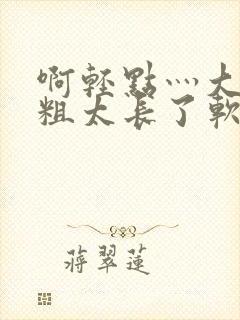 啊輕點灬大
粗太長了軟
蔣翠蓮